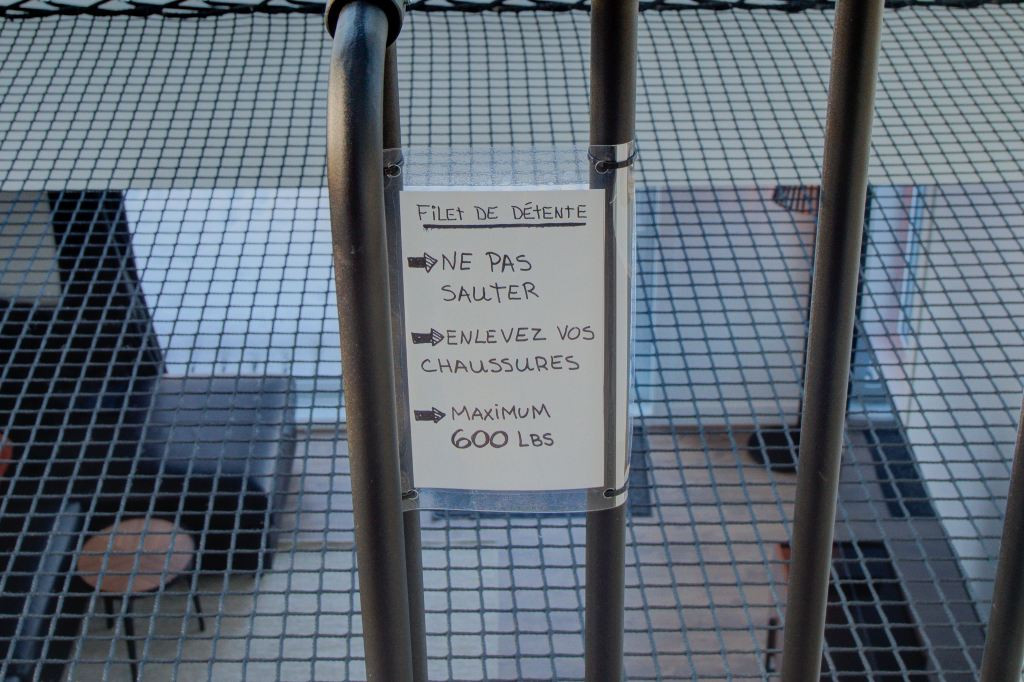 FILET DE DÉTENTE
NE PAS
SAUTER
ENLEVEZ VOS
CHAUSSURES
MAXIMUM
600 LBS